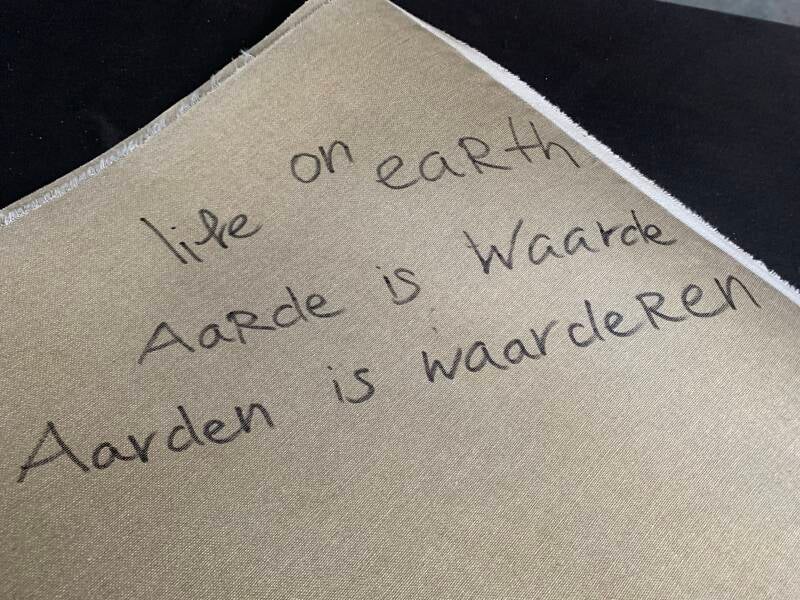 life on eaRth
AaRde is Waarde
Aarden is waardeRen